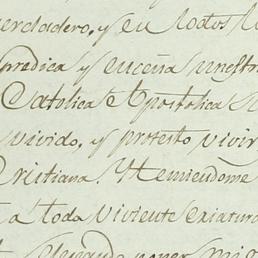 verdadero, y en todos lo
predica y enceña nuestr
Catolica e Apostolica
vivido, y protesto vivir
Cristiana. Y temiendome
a toda viviente criatura